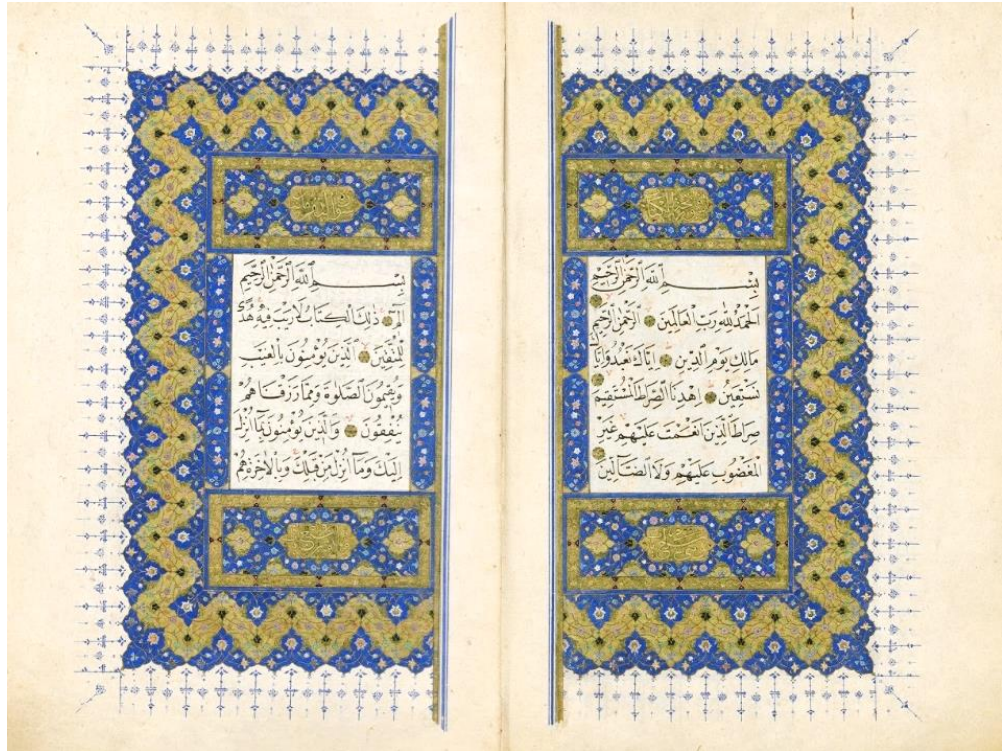 بِسْمِ اللّٰهِ الرَّحْمٰنِ الرَّحِيمِ
اَلْحَمْدُ لِلّٰهِ رَبِّ الْعَالَمِينَ ۝ اَلرَّحْمٰنِ الرَّحِيمِ ۝
مَالِكِ يَوْمِ الدِّينِ ۝ اِيَّاكَ نَعْبُدُ وَاِيَّاكَ
نَسْتَعِينُ ۝ اِهْدِنَا الصِّرَاطَ الْمُسْتَقِيمَ ۝
صِرَاطَ الَّذِينَ اَنْعَمْتَ عَلَيْهِمْ غَيْرِ
الْمَغْضُوبِ عَلَيْهِمْ وَلَا الضَّٓالِّينَ ۝
بِسْمِ اللّٰهِ الرَّحْمٰنِ الرَّحِيمِ
الٓمٓ ۝ ذٰلِكَ الْكِتَابُ لَا رَيْبَ فِيهِ هُدًى
لِلْمُتَّقِينَ ۝ اَلَّذِينَ يُؤْمِنُونَ بِالْغَيْبِ
وَيُقِيمُونَ الصَّلٰوةَ وَمِمَّا رَزَقْنَاهُمْ
يُنْفِقُونَ ۝ وَالَّذِينَ يُؤْمِنُونَ بِمَٓا اُنْزِلَ
اِلَيْكَ وَمَٓا اُنْزِلَ مِنْ قَبْلِكَ وَبِالْاٰخِرَةِ هُمْ